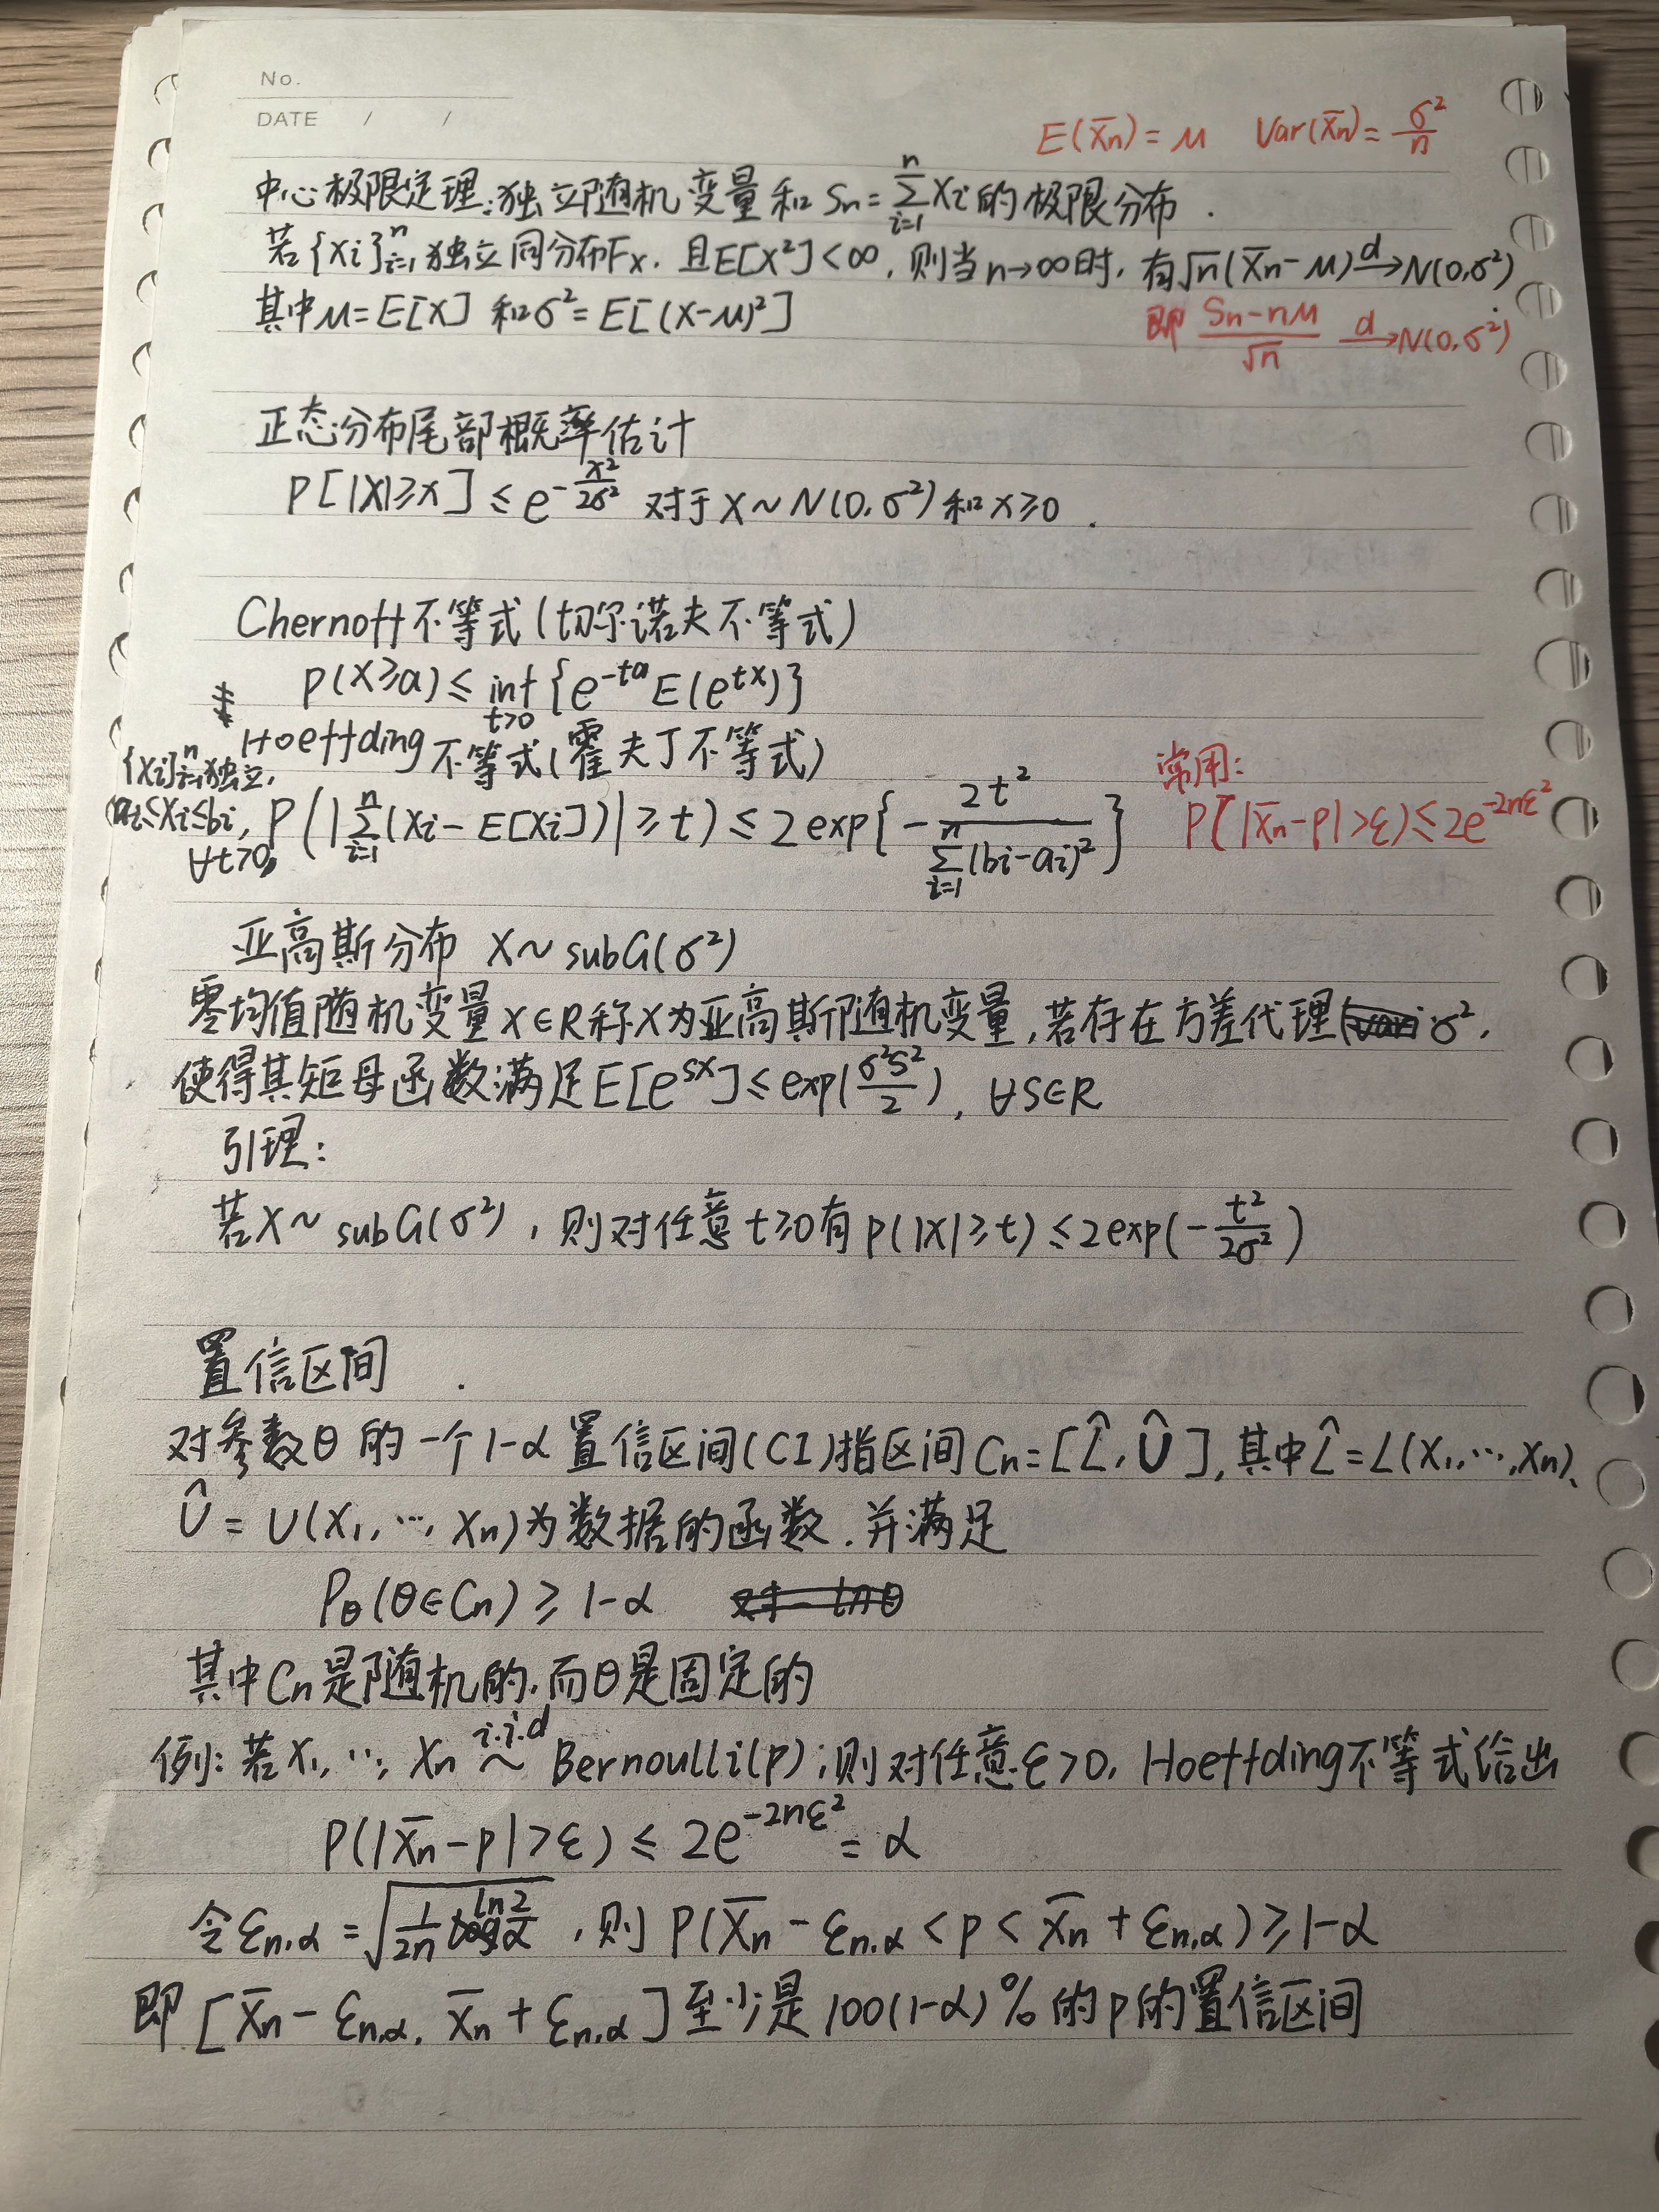 No.
DATE / /
E(X̄n) = μ Var(X̄n) = σ²/n
中心极限定理:独立随机变量和 Sn = ∑_{i=1}^{n} Xi 的极限分布.
若{Xi}_{i=1}^{n}独立同分布Fx. 且E[X²]<∞, 则当n→∞时, 有√n(X̄n-μ) →d N(0,σ²)
其中μ=E[X] 和σ²=E[(X-μ)²]
即 (Sn-nμ)/√n →d N(0,σ²)
正态分布尾部概率估计
P[|X|≥x] ≤ e^{-x²/2σ²} 对于X~N(0,σ²)和x≥0.
Chernoff不等式(切尔诺夫不等式)
P(X≥a) ≤ inf_{t>0} {e^{-ta}E(e^{tX})}
Hoeffding不等式(霍夫丁不等式)
{Xi}_{i=1}^{n}独立,
ai≤Xi≤bi,
∀t>0,
P(|∑_{i=1}^{n}(Xi-E[Xi])|≥t) ≤ 2exp{-2t²/∑_{i=1}^{n}(bi-ai)²}
常用:
P(|X̄n-p|>ε)≤2e^{-2nε²}
亚高斯分布 X~subG(σ²)
零均值随机变量X∈R称X为亚高斯随机变量,若存在方差代理σ²,
使得其矩母函数满足E[e^{sX}]≤exp(σ²s²/2), ∀S∈R
引理:
若X~subG(σ²), 则对任意t≥0有P(|X|≥t)≤2exp(-t²/2σ²)
置信区间.
对参数θ的一个1-α置信区间(CI)指区间Cn=[L̂,Û],其中L̂=L(X1,…,Xn),
Û=U(X1,…,Xn)为数据的函数.并满足
Pθ(θ∈Cn)≥1-α
其中Cn是随机的,而θ是固定的
例:若X1,…,Xn ~i.i.d Bernoulli(p),则对任意ε>0, Hoeffding不等式给出
P(|X̄n-p|>ε) ≤ 2e^{-2nε²} = α
令ε_{n,α}=√(1/2n ln 2/α), 则 P(X̄n-ε_{n,α}<p<X̄n+ε_{n,α})≥1-α
即[X̄n-ε_{n,α}, X̄n+ε_{n,α}]至少是100(1-α)%的p的置信区间